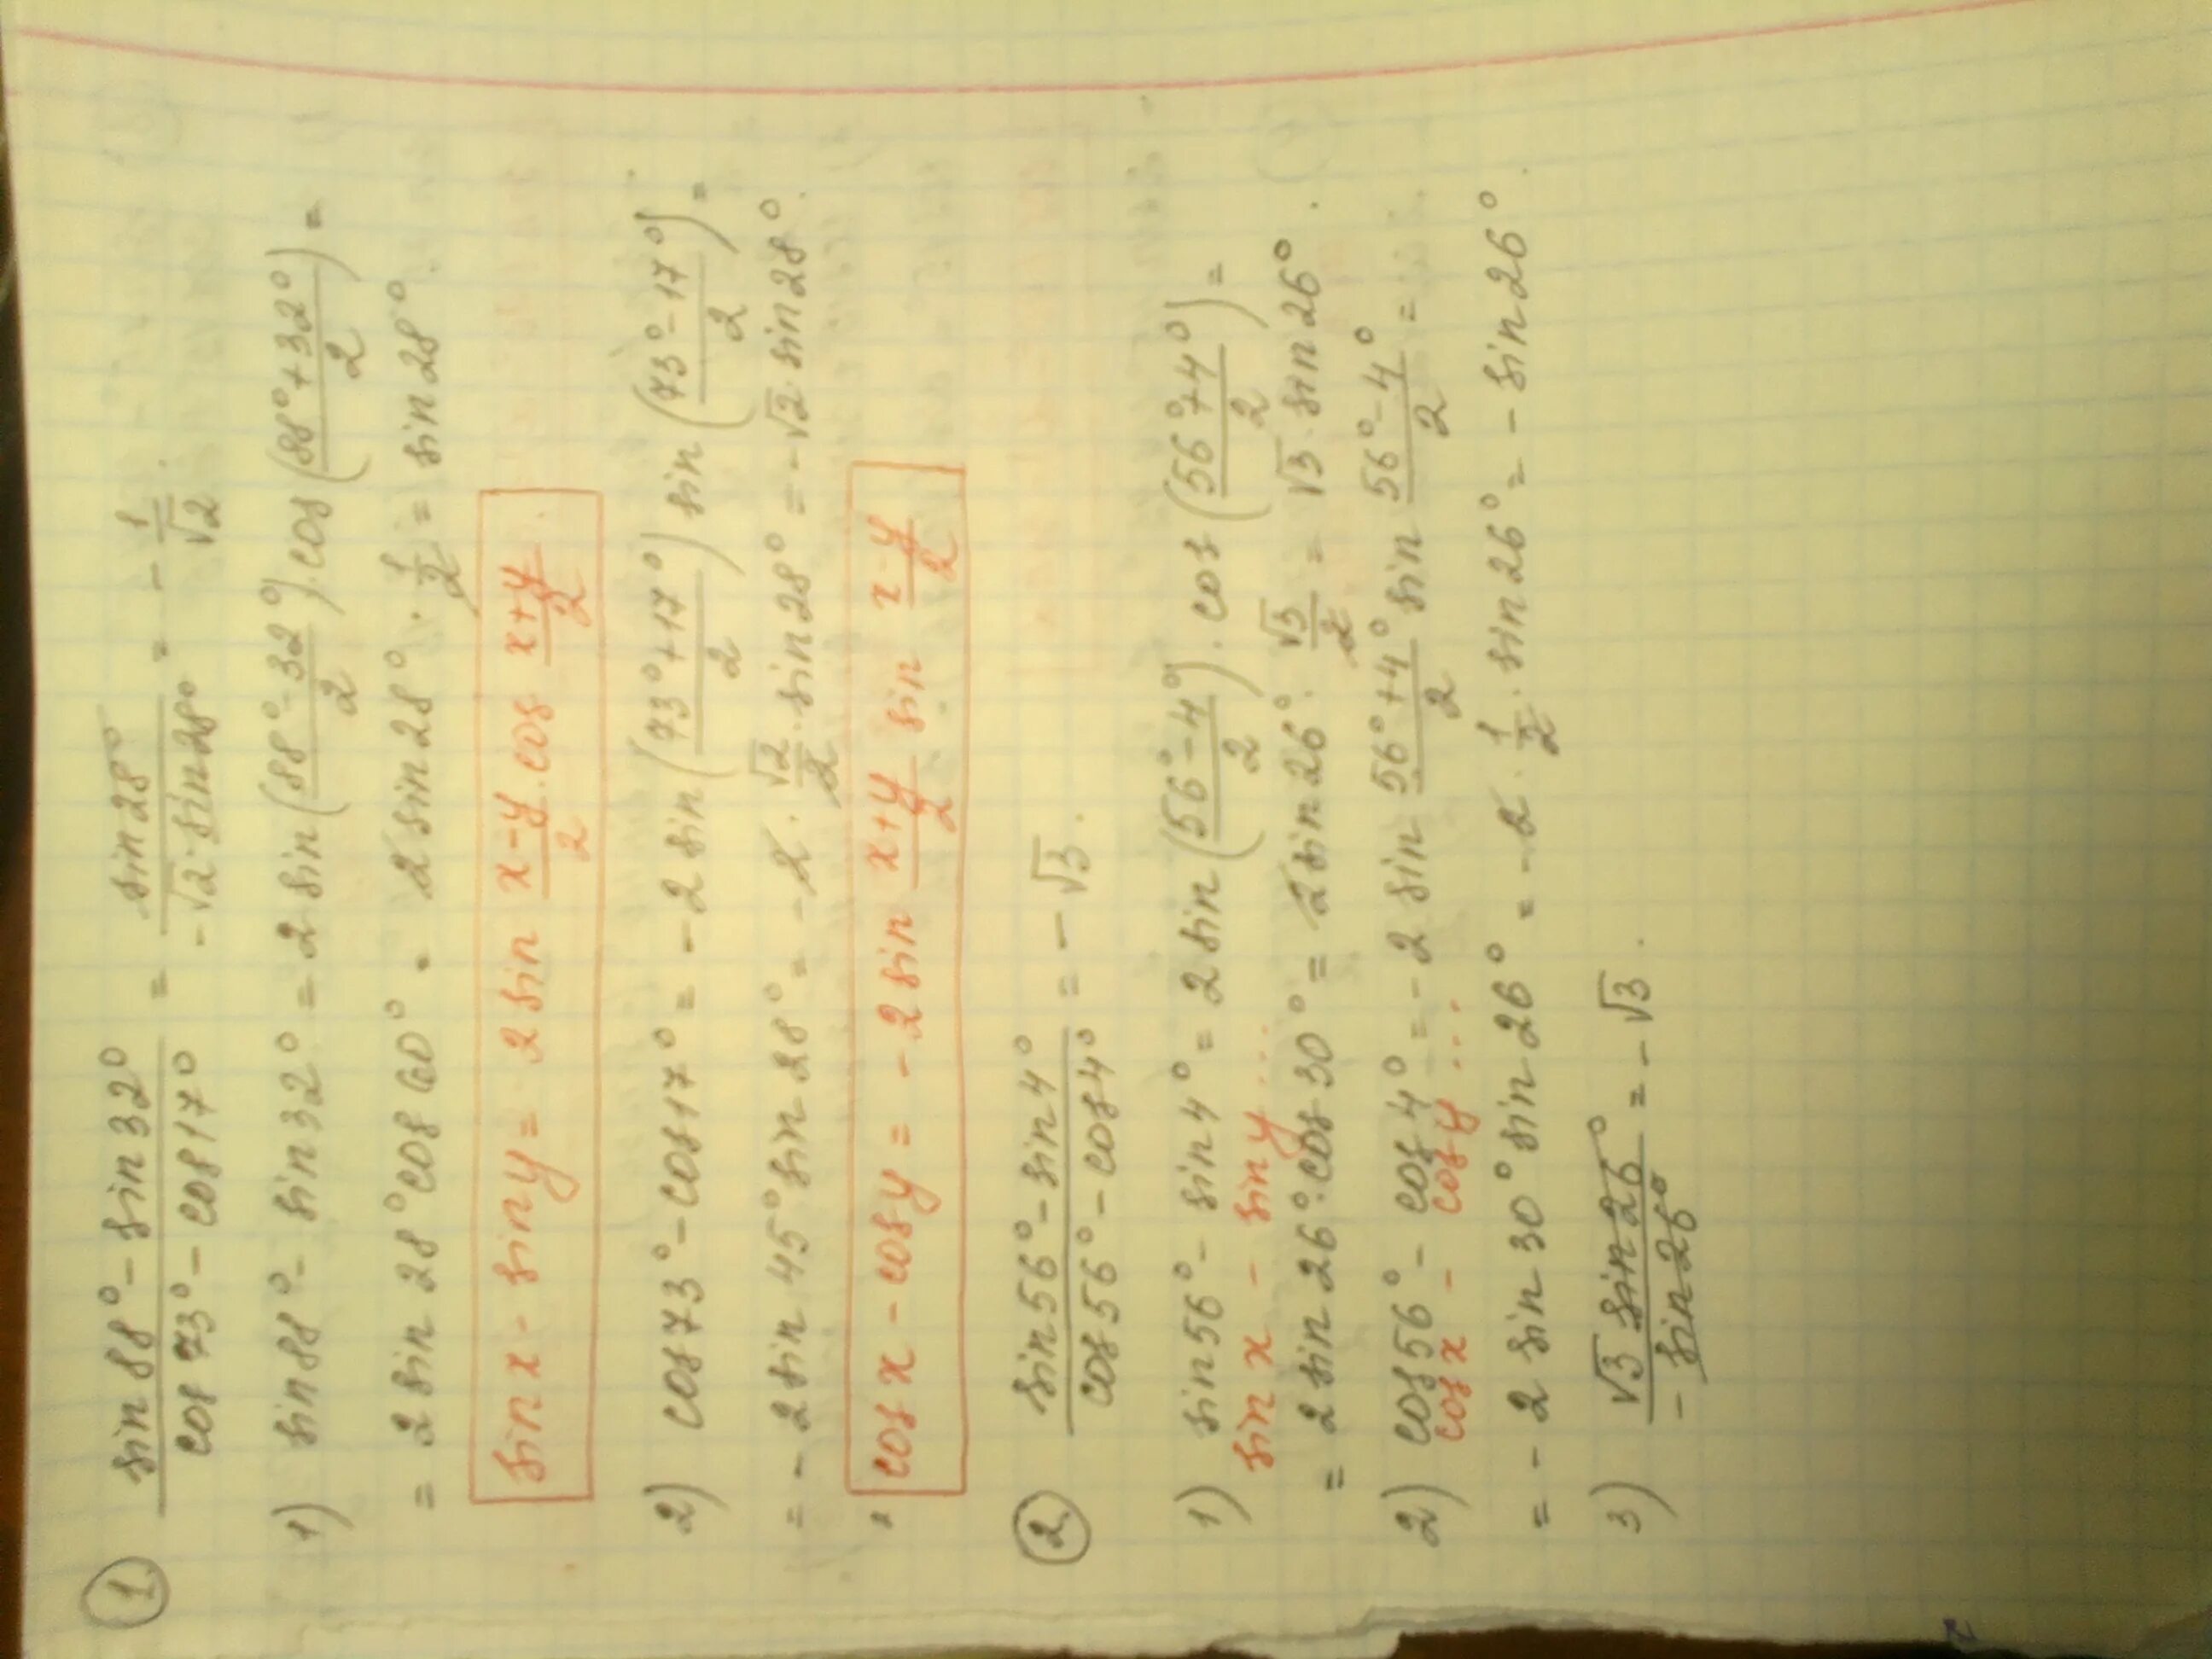 1 (sin 88° - sin 32°)/(cos 73° - cos 17°) = sin 28°/(-√2 · sin 28°) = - 1/√2.
1) sin 88° - sin 32° = 2 sin ((88° - 32°)/2) · cos ((88° + 32°)/2) =
= 2 sin 28° cos 60° = 2 sin 28° · 1/2 = sin 28°.
sin x - sin y = 2 sin (x-y)/2 · cos (x+y)/2.
2) cos 73° - cos 17° = - 2 sin ((73° + 17°)/2) sin ((73° - 17°)/2) =
= - 2 sin 45° sin 28° = - 2 · √2/2 · sin 28° = - √2 sin 28°.
cos x - cos y = - 2 sin (x+y)/2 sin (x-y)/2
2 (sin 56° - sin 4°)/(cos 56° - cos 4°) = - √3.
1) sin 56° - sin 4° = 2 sin ((56° - 4°)/2) · cos ((56° + 4°)/2) =
sin x - sin y ...
= 2 sin 26° · cos 30° = 2 sin 26° · √3/2 = √3 · sin 26°.
2) cos 56° - cos 4° = - 2 sin (56° + 4°)/2 sin (56° - 4°)/2 =
cos x - cos y ...
= - 2 sin 30° sin 26° = - 2 · 1/2 · sin 26° = - sin 26°.
3) √3 sin 26°/(- sin 26°) = - √3.